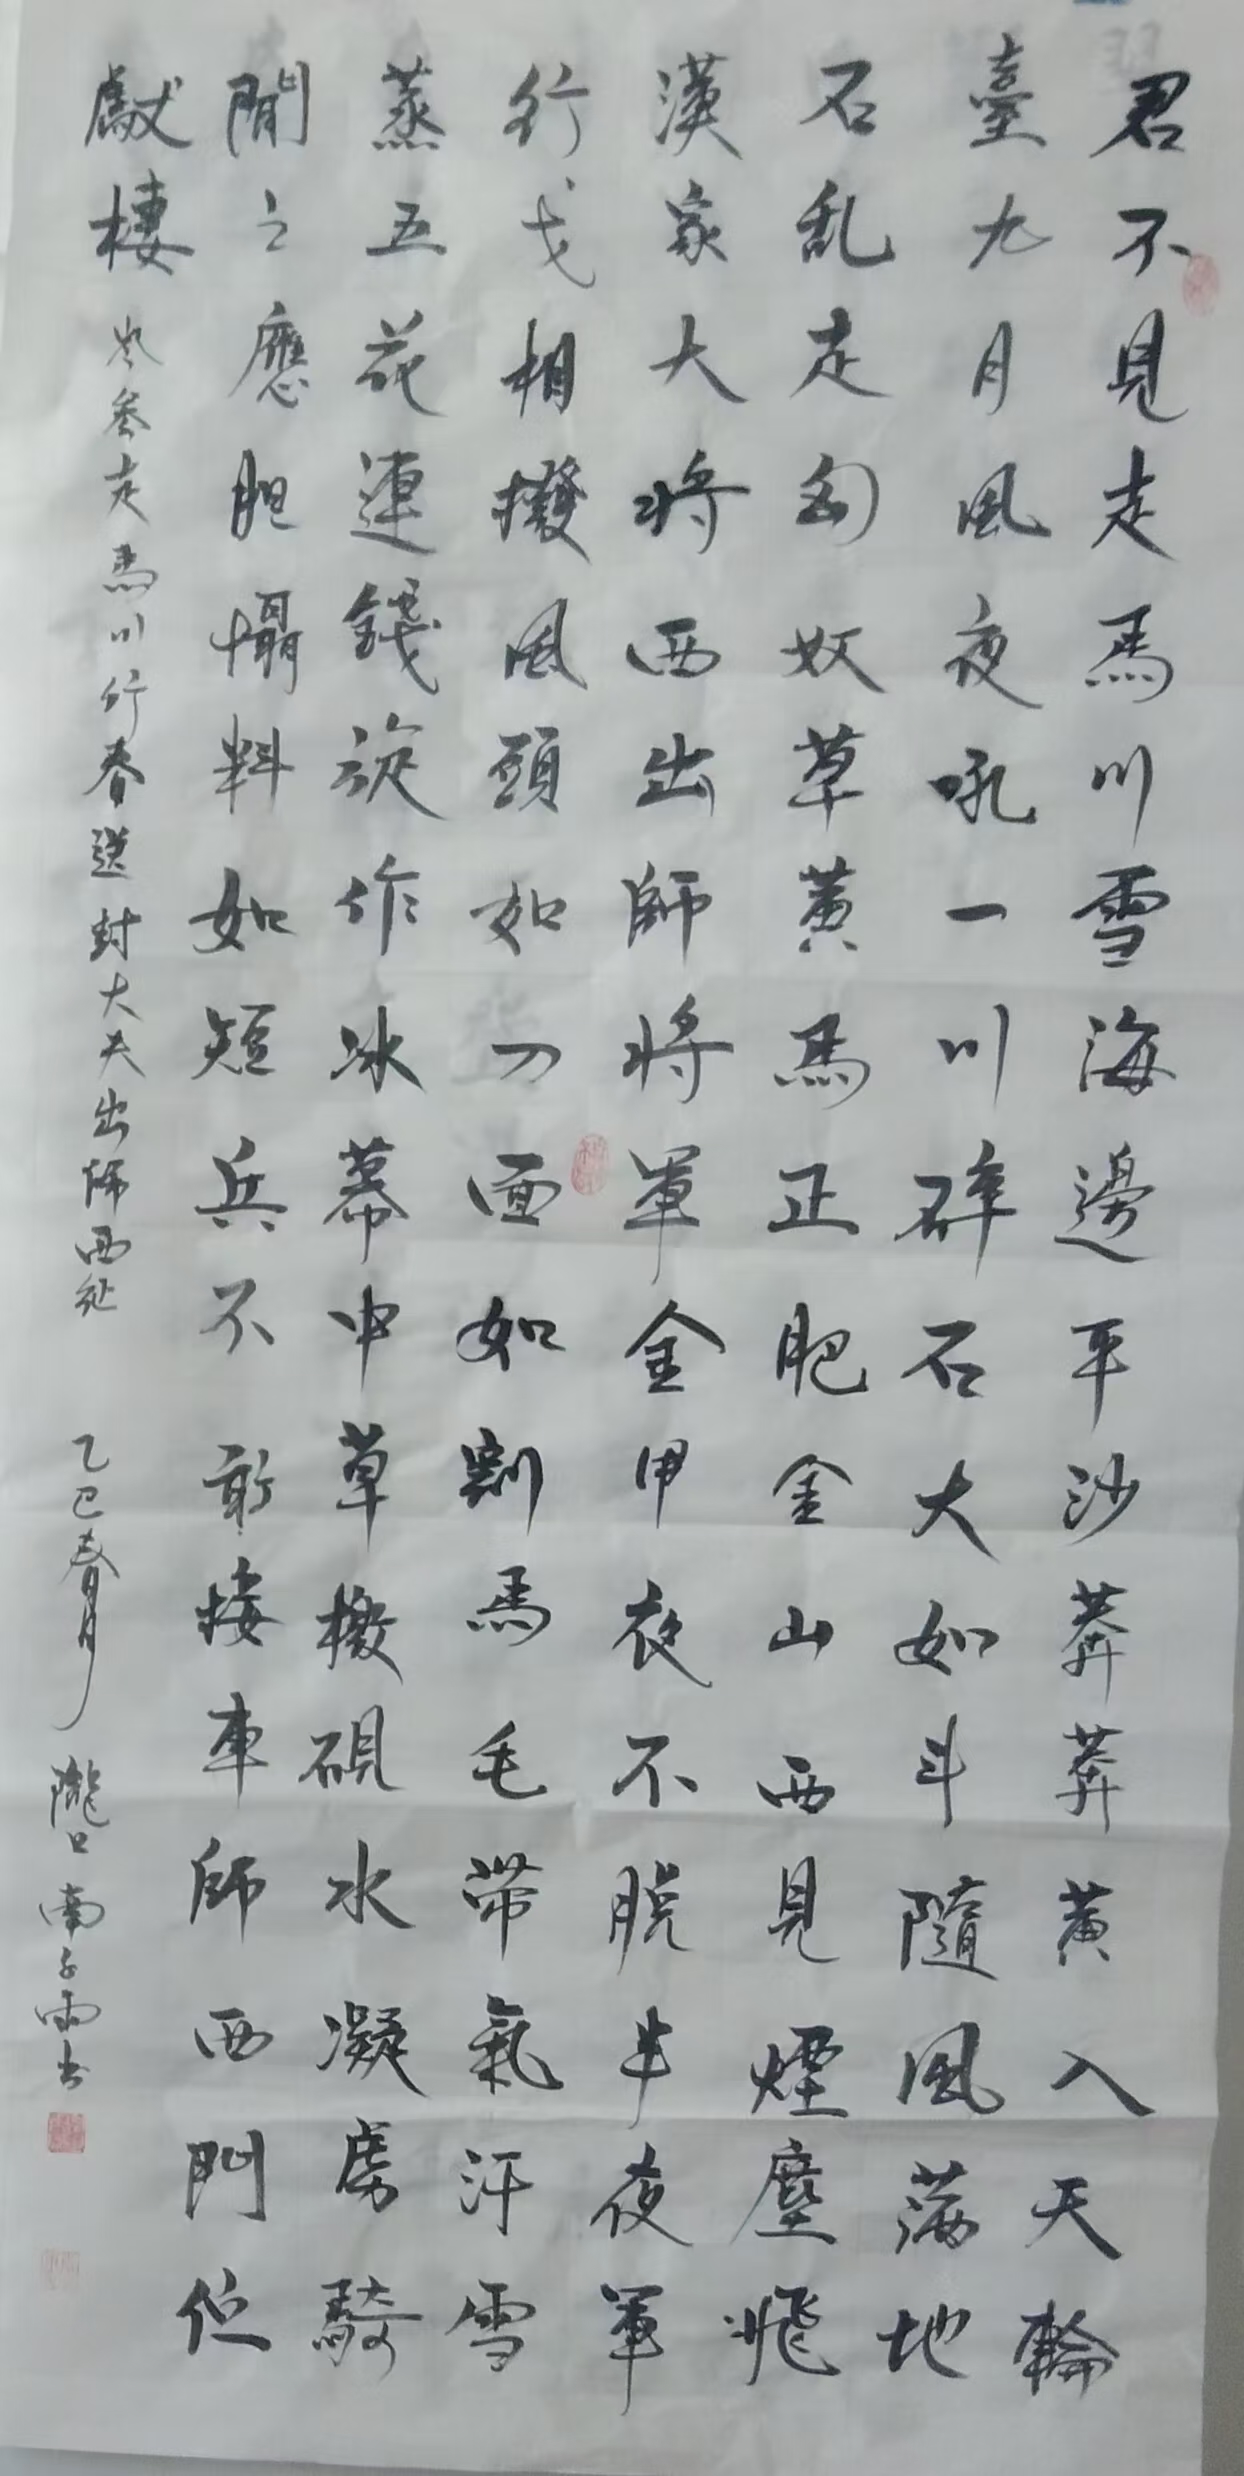 君不見走馬川雪海邊平沙莽莽黃入天輪
臺九月風夜吼一川碎石大如斗隨風滿地
石乱走匈奴草黃馬正肥金山西見煙塵飛
漢家大將西出師將軍金甲夜不脫半夜軍
行戈相撥風頭如刀面如割馬毛帶氣汗雪
蒸五花連錢旋作冰幕中草檄硯水凝虜騎
聞之應胆懾料如短兵不敢接車師西門佇
獻棲
岑參走馬川行奉送封大夫出師西征
乙巳春月 隴口南子雨书